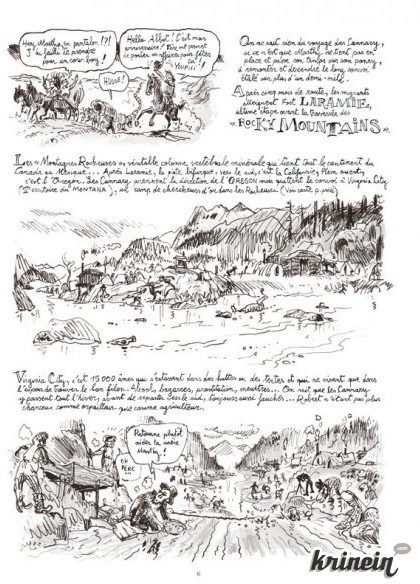 Hey, Martha, en pantalon!?!
J'ai failli te prendre
pour un cow-boy!
Hello Abbot! C'est mon
anniversaire!
HURRR!
On ne sait rien du voyage des Cannary,
si ce n'est que Martha ne tient pas en
place et passe son temps sur son poney,
à remonter et descendre le long convoi
étiré sur plus d'un demi-mile.
Après cinq mois de route, les migrants
atteignent Fort LARAMIE,
ultime étape avant la traversée des
« ROCKY MOUNTAINS ».
Les « Montagnes Rocheuses », véritable colonne vertébrale minérale qui tient tout le continent du
Canada au Mexique... Après Laramie, la piste bifurque: vers le sud, c'est la Californie, Plein ouest,
c'est l'Oregon. Les Cannary prennent la direction de l'OREGON mais quittent le convoi à Virginia City
(Territoire du MONTANA), un camp de chercheurs d'or dans les Rocheuses
Virginia City, c'est 15 000 âmes qui s'entassent dans des huttes ou des tentes et qui ne vivent que dans
l'espoir de trouver le bon filon. Alcool, bagarres, prostitution, meurtres... On sait que les Cannary
y passent tout l'hiver, avant de repartir vers le sud, toujours aussi fauchés... Robert n'étant pas plus
chanceux comme orpailleur que comme agriculteur.
Retourne plutôt
aider ta mère
Martha!
PÈRE
6
krinein